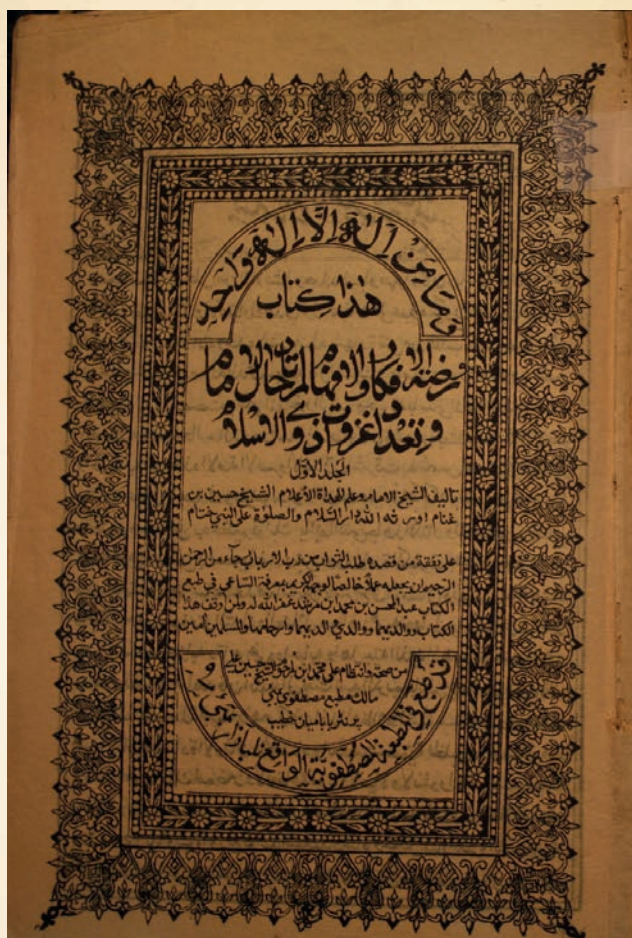 وَمَا مِنْ إِلٰهٍ إِلَّا إِلٰهٌ وَاحِدٌ
هذا كتاب
روضة الافكار والافهام لمرتاد حال الامام
وتعداد غزوات ذوي الاسلام
المجلد الاول
تاليف الشيخ الامام وعلم الهداة الاعلام الشيخ حسين بن
غنام اورثه الله دار السلام والصلوة على النبي ختام
على نفقة من قصده طلب الثواب من رب الارباب جاء من الرحمن
الرحيم ان يجعله عملا خالصا لوجهه الكريم بمعرفة الساعى في طبع
الكتاب عبد المحسن بن محمد ابن مرشد غفر الله له ولمن اوقف هذا
الكتاب ووالديهما ووالدي والديهما وارحامهما والمسلمين آمين
من صحة وانتظام على محمد بن المرحوم الشيخ حسين علي
مالك مطبع مصطفوي بمبي
پرنٹر بابا ميان خطيب
قد طبع في المطبعة المصطفوية الواقع بلبازار بمبي